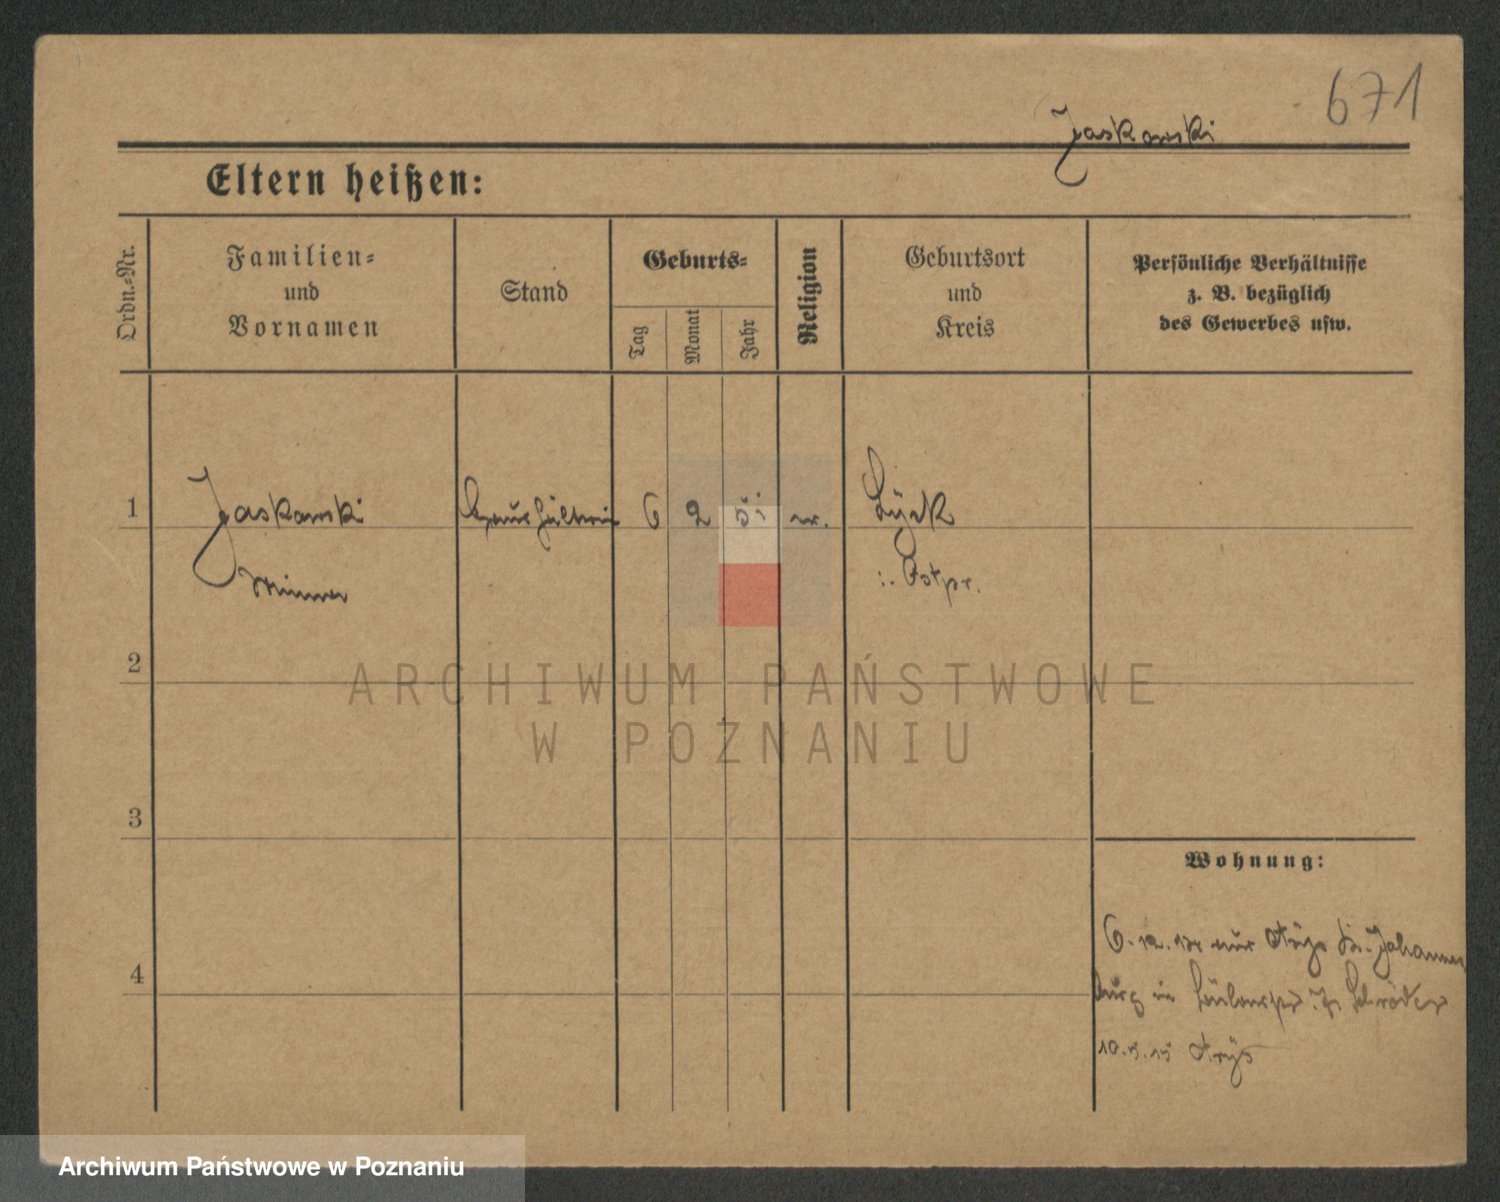 671
Jaskowski
Eltern heißen:
Ordn.=Nr.
Familien=
und
Vornamen
Stand
Geburts=
Tag
Monat
Jahr
Religion
Geburtsort
und
Kreis
Persönliche Verhältnisse
z. B. bezüglich
des Gewerbes usw.
1
Jaskowski
Haushälterin
6
2
51
ev.
Lyck
i. Ostpr.
2
3
4
Wohnung:
6.12. aus Arys Kr. Johannes
burg in
10.5.15 Arys
ARCHIWUM PAŃSTWOWE
W POZNANIU
Archiwum Państwowe w Poznaniu